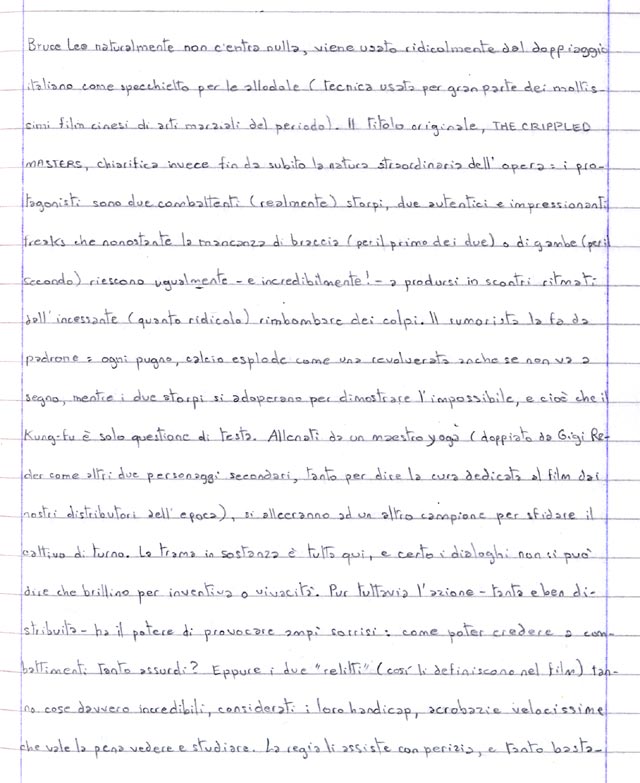 Bruce Lee naturalmente non c'entra nulla, viene usato ridicolmente dal doppiaggio
italiano come specchietto per le allodole (tecnica usata per gran parte dei moltis-
simi film cinesi di arti marziali del periodo). Il titolo originale, THE CRIPPLED
MASTERS, chiarifica invece fin da subito la natura straordinaria dell'opera: i pro-
tagonisti sono due combattenti (realmente) storpi, due autentici e impressionanti
freaks che nonostante la mancanza di braccia (per il primo dei due) o di gambe (per il
secondo) riescono ugualmente - e incredibilmente! - a prodursi in scontri ritmati
dall'incessante (quanto ridicolo) rimbombare dei colpi. Il rumorista la fa da
padrone: ogni pugno, calcio esplode come una revolverata anche se non va a
segno, mentre i due storpi si adoperano per dimostrare l'impossibile, e cioè che il
Kung-fu è solo questione di testa. Allenati da un maestro yoga (doppiato da Gigi Re-
der come altri due personaggi secondari, tanto per dire la cura dedicata al film dai
nostri distributori dell'epoca), si alleeranno ad un altro campione per sfidare il
cattivo di turno. La trama in sostanza è tutta qui, e certo i dialoghi non si può
dire che brillino per inventiva o vivacità. Pur tuttavia l'azione - tanta e ben di-
stribuita - ha il potere di provocare ampi sorrisi: come poter credere a com-
battimenti tanto assurdi? Eppure i due "relitti" (così li definiscono nel film) fan-
no cose davvero incredibili, considerati i loro handicap, acrobazie velocissime
che vale la pena vedere e studiare. La regia li assiste con perizia, e tanto basta-